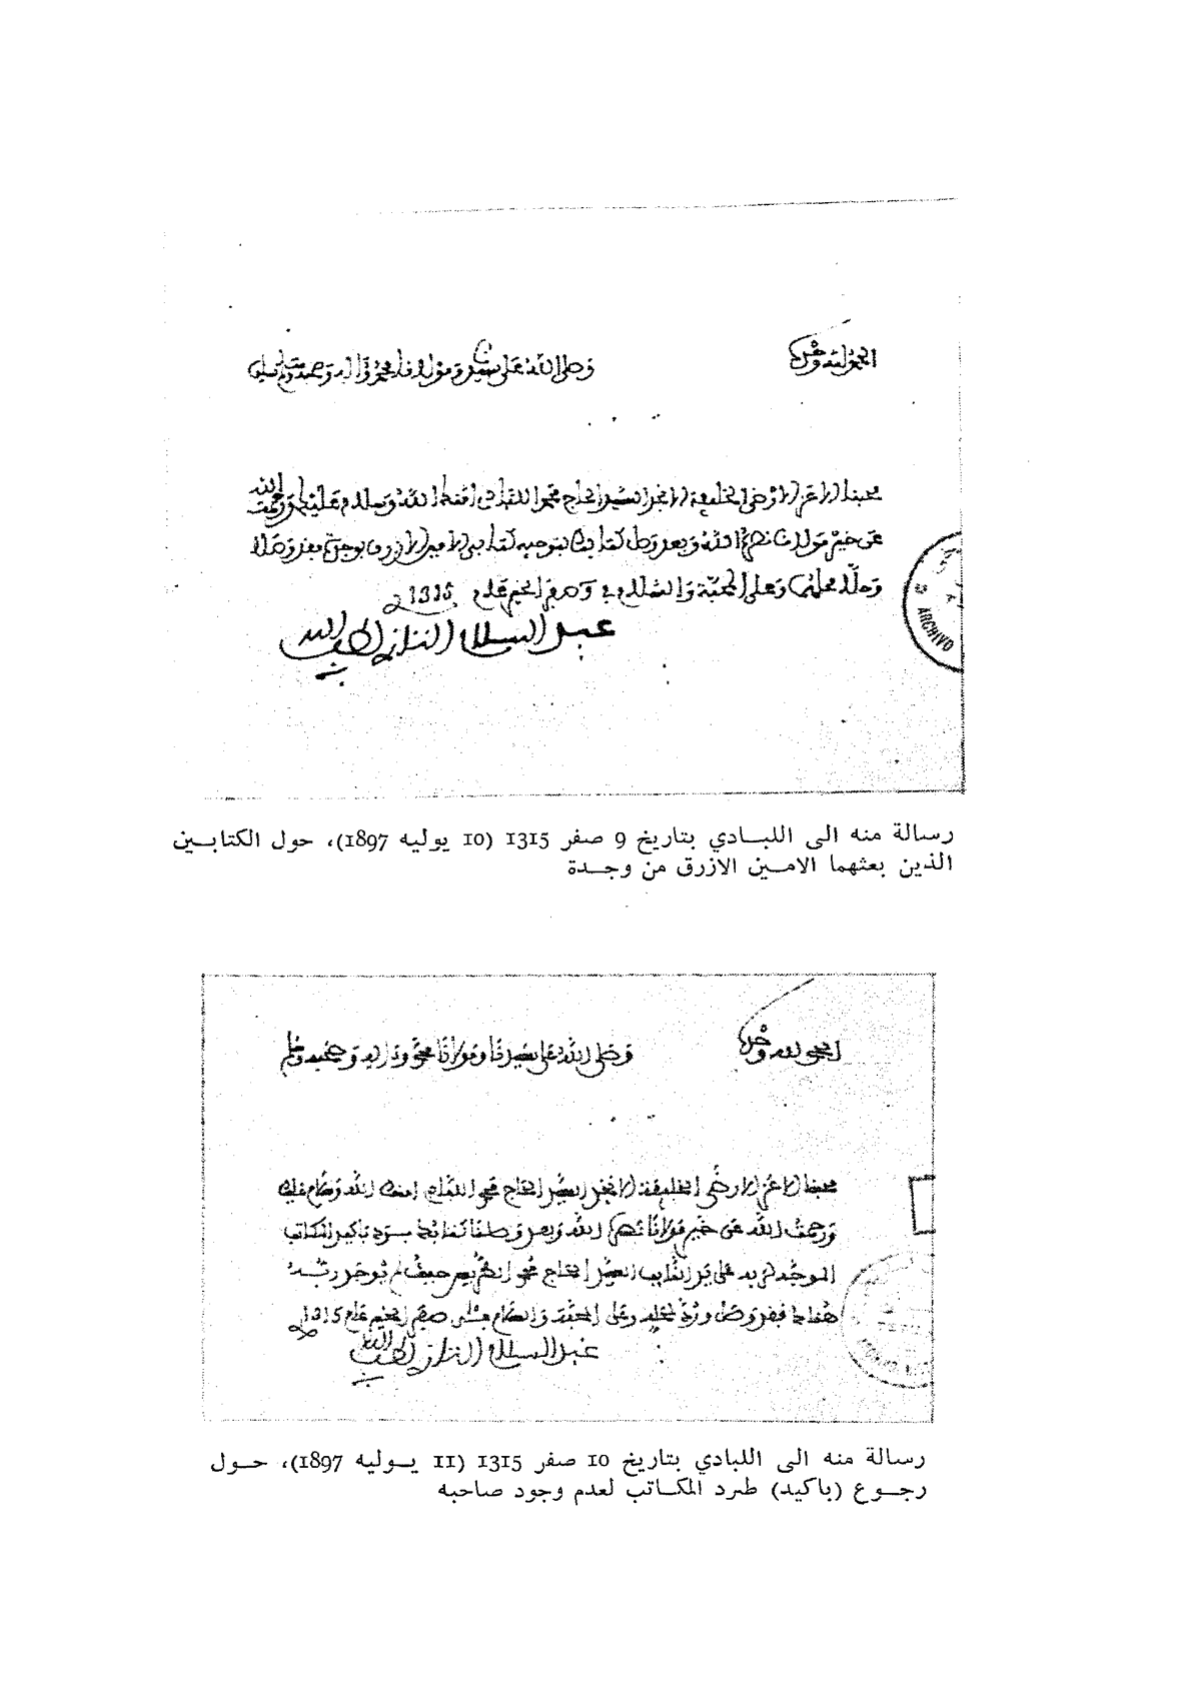 الحمد لله وحده
وصلى الله على سيدنا ومولانا محمد وءاله وصحبه وسلم تسليما
محبنا الاعز الارضى الخليفة الانجد السيد الحاج محمد اللبادي امنك الله وسلام عليك ورحمت الله
عن خير مولانا نصره الله وبعد وصل كتابك بتوجيه كتابي الامين الازرق بوجدة فقد وصلا
وحلا محلهما وعلى المحبة والسلام في 9 صفر الخير عام 1315
عبد السلام التازي لطف الله به
ARCHIVO
رسالة منه الى اللبـادي بتاريخ 9 صفر 1315 (10 يوليه 1897)، حول الكتابـين
الذين بعثهما الامـين الازرق من وجـدة
الحمد لله وحده
وصلى الله على سيدنا ومولانا محمد وءاله وصحبه وسلم
محبنا الاعز الارضى الخليفة الانجد السيد الحاج محمد اللبادي امنك الله وسلام عليك
ورحمت الله عن خير مولانا نصره الله وبعد وصلنا كتابك برد باكيد المكاتب
الموجه لك به على يد النايب السيد الحاج محمد حيث لم يوجد ربه
هناك فقد وصل وعلى المحبة والسلام في 10 صفر الخير عام 1315
عبد السلام التازي لطف الله به
رسالة منه الى اللبادي بتاريخ 10 صفر 1315 (11 يـوليه 1897)، حـول
رجـوع (باكيد) طرد المكـاتب لعدم وجود صاحبه